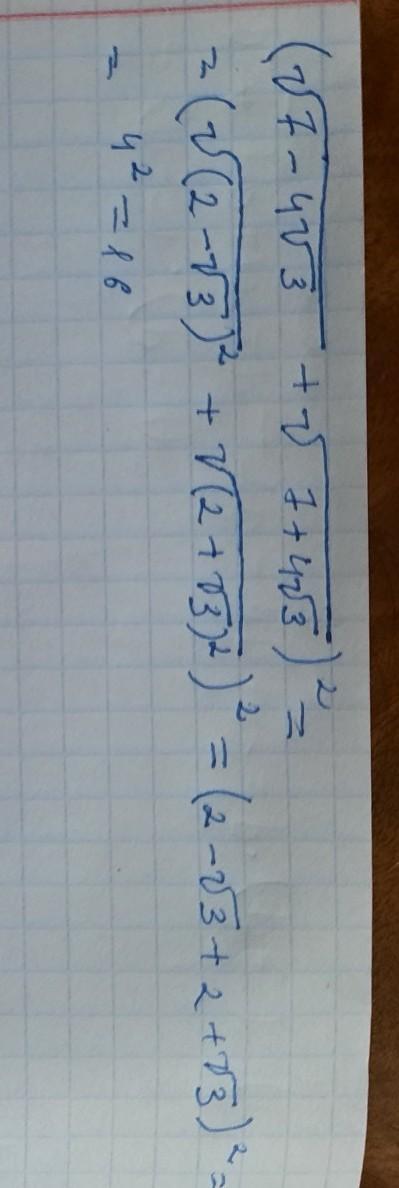 (√7-4√3 + √7+4√3)² =
= (√(2-√3)² + √(2+√3)²)² = (2-√3+2+√3)² =
= 4² = 16